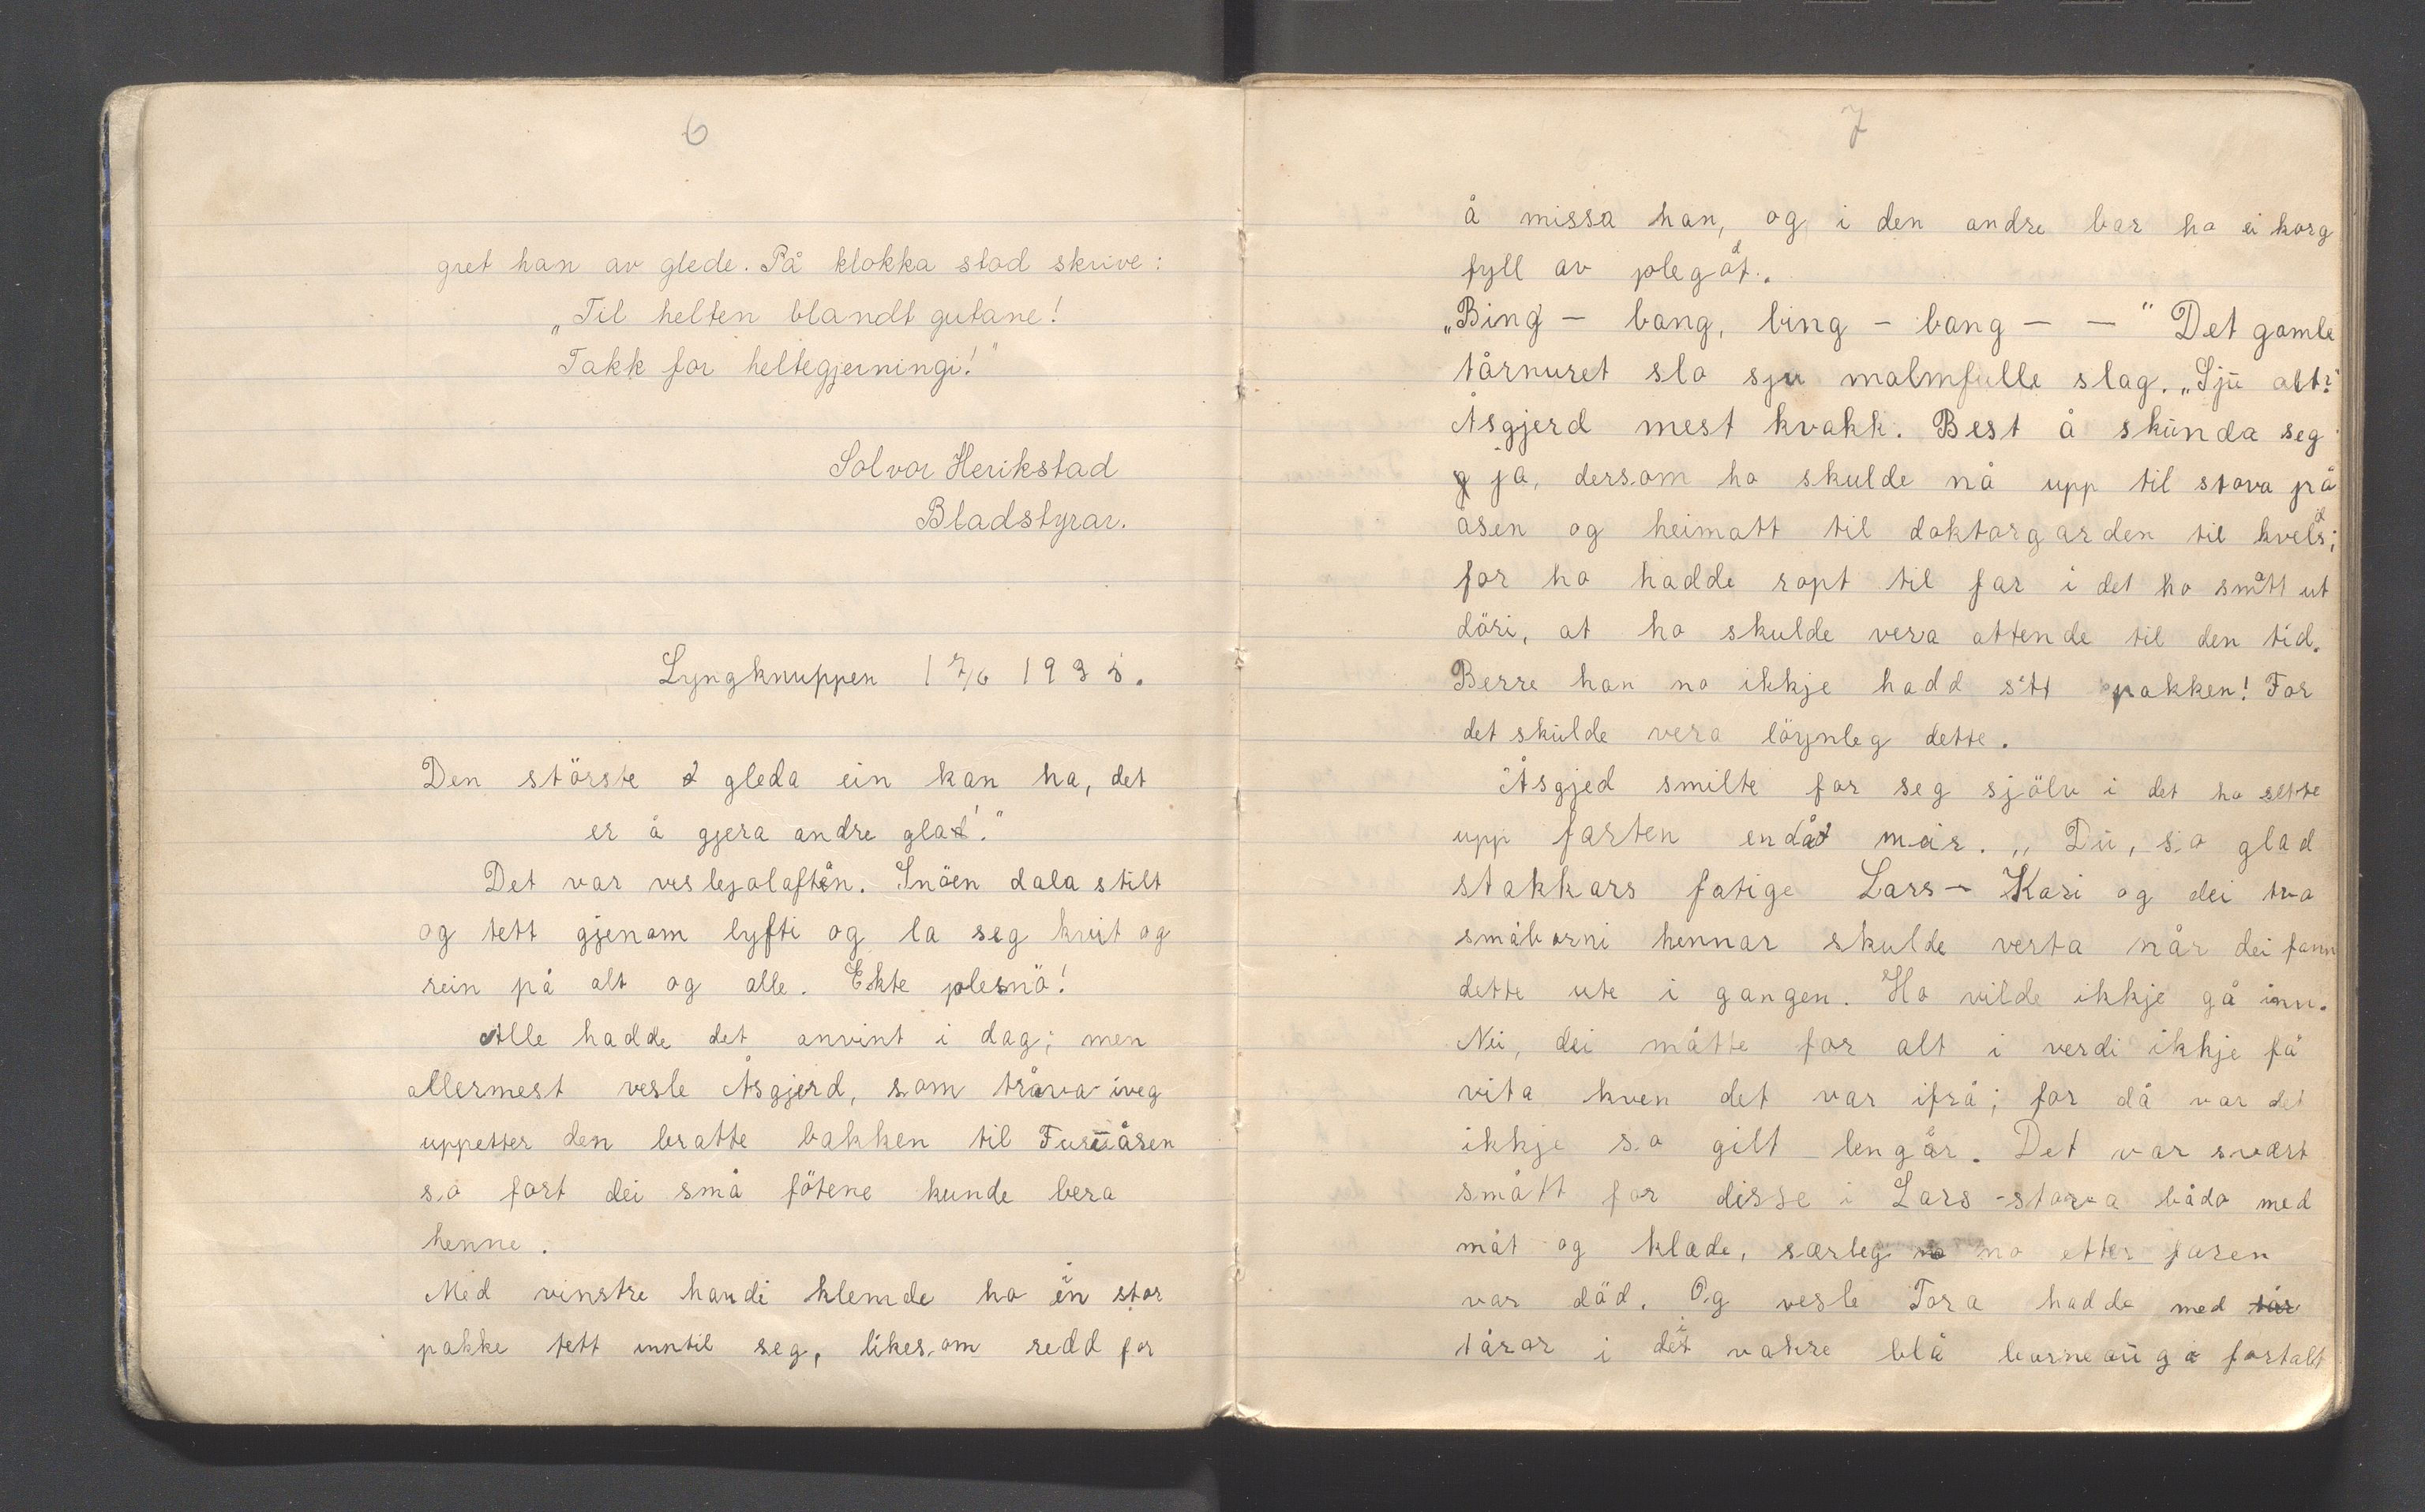 6
gret han av glede. På klokka stod skrive:
„Til helten blandt gutane!
Takk for heltegjerningi!"
Solvor Herikstad
Bladstyrar.
Lyngknuppen 17/6 1935.
Den störste gleda ein kan ha, det
er å gjera andre glad!."
Det var veslejolaftån. Snöen dala stilt
og tett gjenom lyfti og la seg kvit og
rein på alt og alle. Ekte jolesnö!
Alle hadde det onvint i dag; men
allermest vesle Åsgjerd, som tråva iveg
uppetter den bratte bakken til Furuåsen
so fort dei små fötene kunde bera
henne.
Med vinstre handi klemde ho ein stor
pakke tett inntil seg, likesom redd for
7
å missa han, og i den andre bar ho ei korg
fyll av jolegådt.
„Bing - bang, bing - bang - - " Det gamle
tårnuret slo sju malmfulle slag. „Sju alt?"
Åsgjerd mest kvakk. Best å skunda seg
ja, dersom ho skulde nå upp til stova på
åsen og heimatt til doktorgarden til kvelds;
for ho hadde ropt til far i det ho smatt ut
döri, at ho skulde vera attende til den tid.
Berre han no ikkje hadd sitt pakken! For
det skulde vera löynleg dette.
Åsgjed smilte for seg sjölv i det ho sette
upp farten endåt meir. „Du, so glad
stakkars fatige Lars- Kari og dei tvo
småborni hennar skulde verta når dei fann
dette ute i gangen. Ho vilde ikkje gå inn.
Nei, dei måtte for alt i verdi ikkje få
vita kven det var ifrå; for då var det
ikkje so gilt lengår. Det var svært
smått for disse i Lars -stova bådo med
mat og klæde, særleg no etter faren
var död. Og vesle Tora hadde med tår
tårar i dei vakre blå borneaugo fortalt